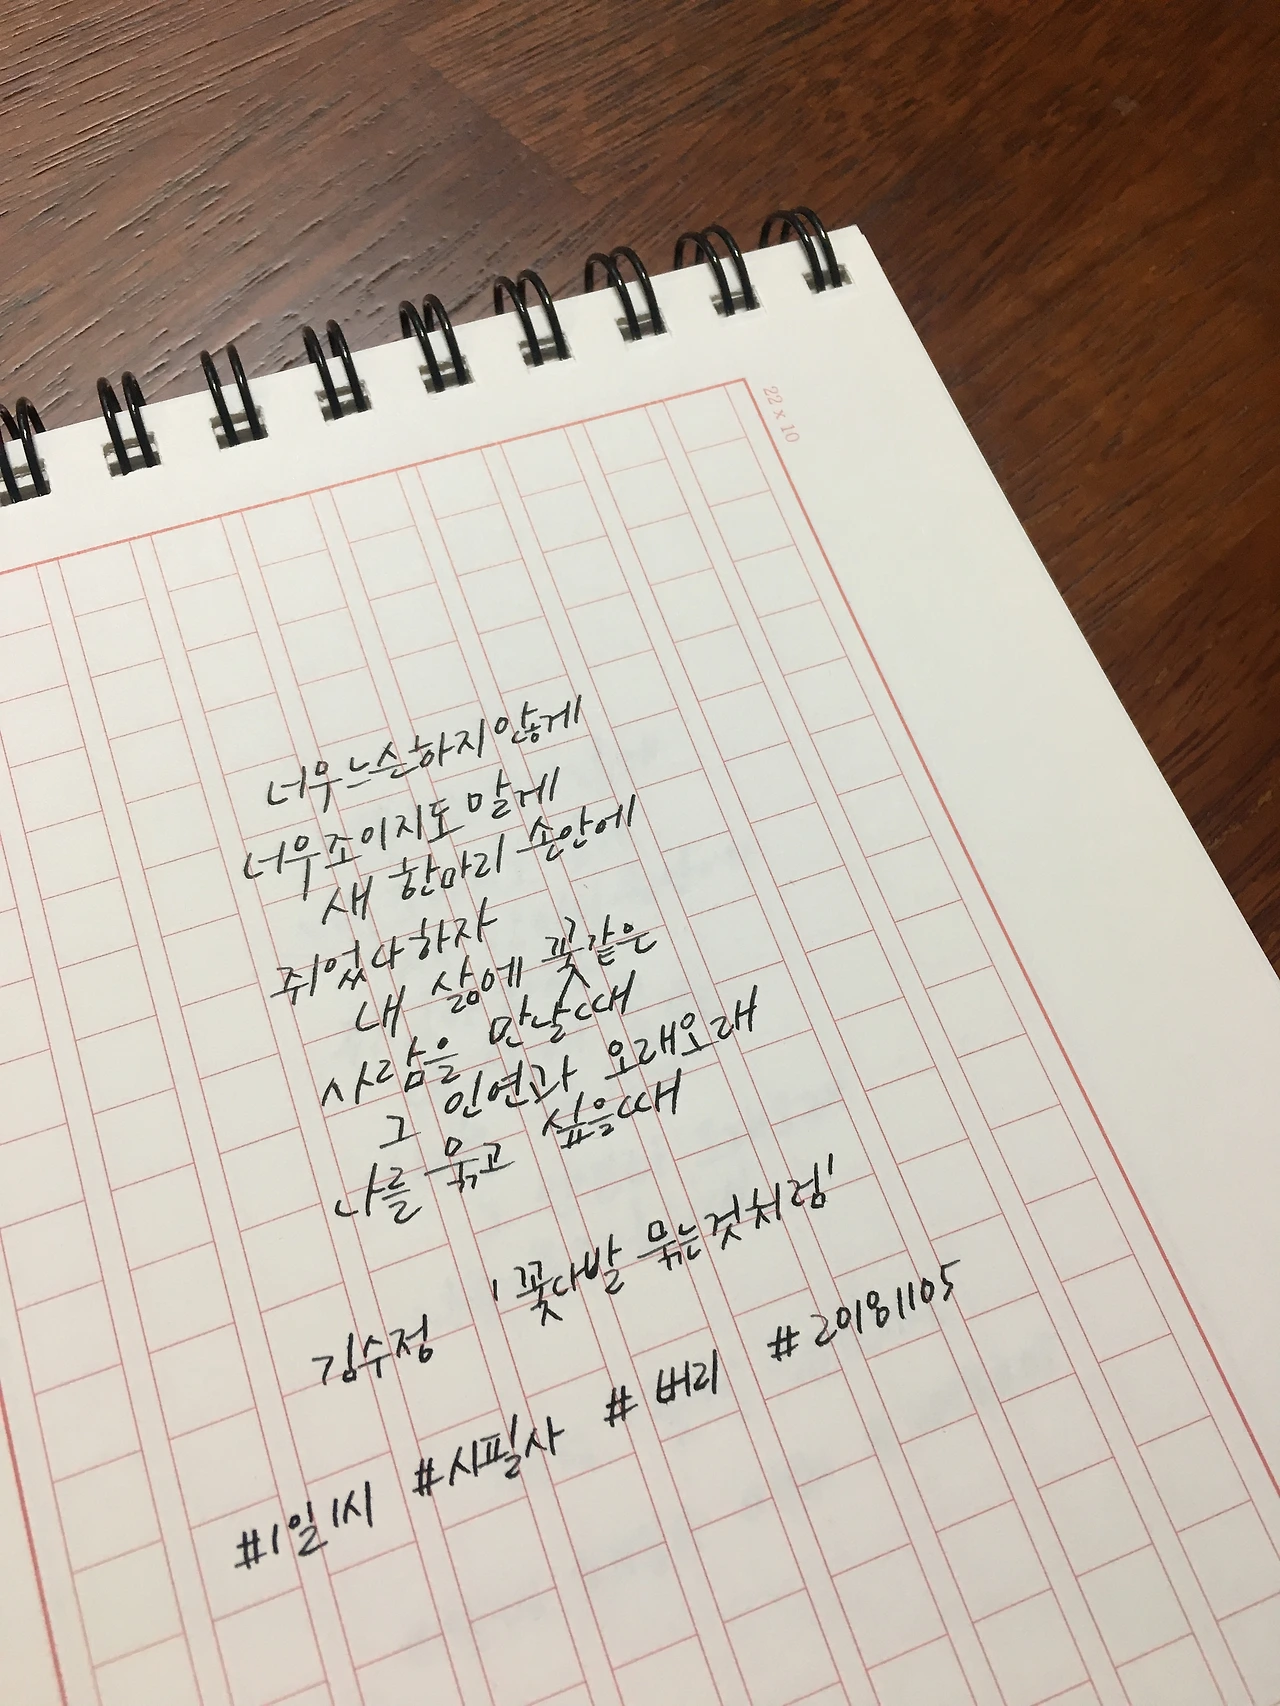 22 x 10
너무느슨하지않게
너무조이지도 말게
새 한마리 손안에
쥐었다하자
내 삶에 꽃같은
사람을 만날때
그 인연과 오래오래
나를 묶고 싶을때
김수정 '꽃다발 묶는것처럼'
#1일1시 #시필사 #버리 #20181105